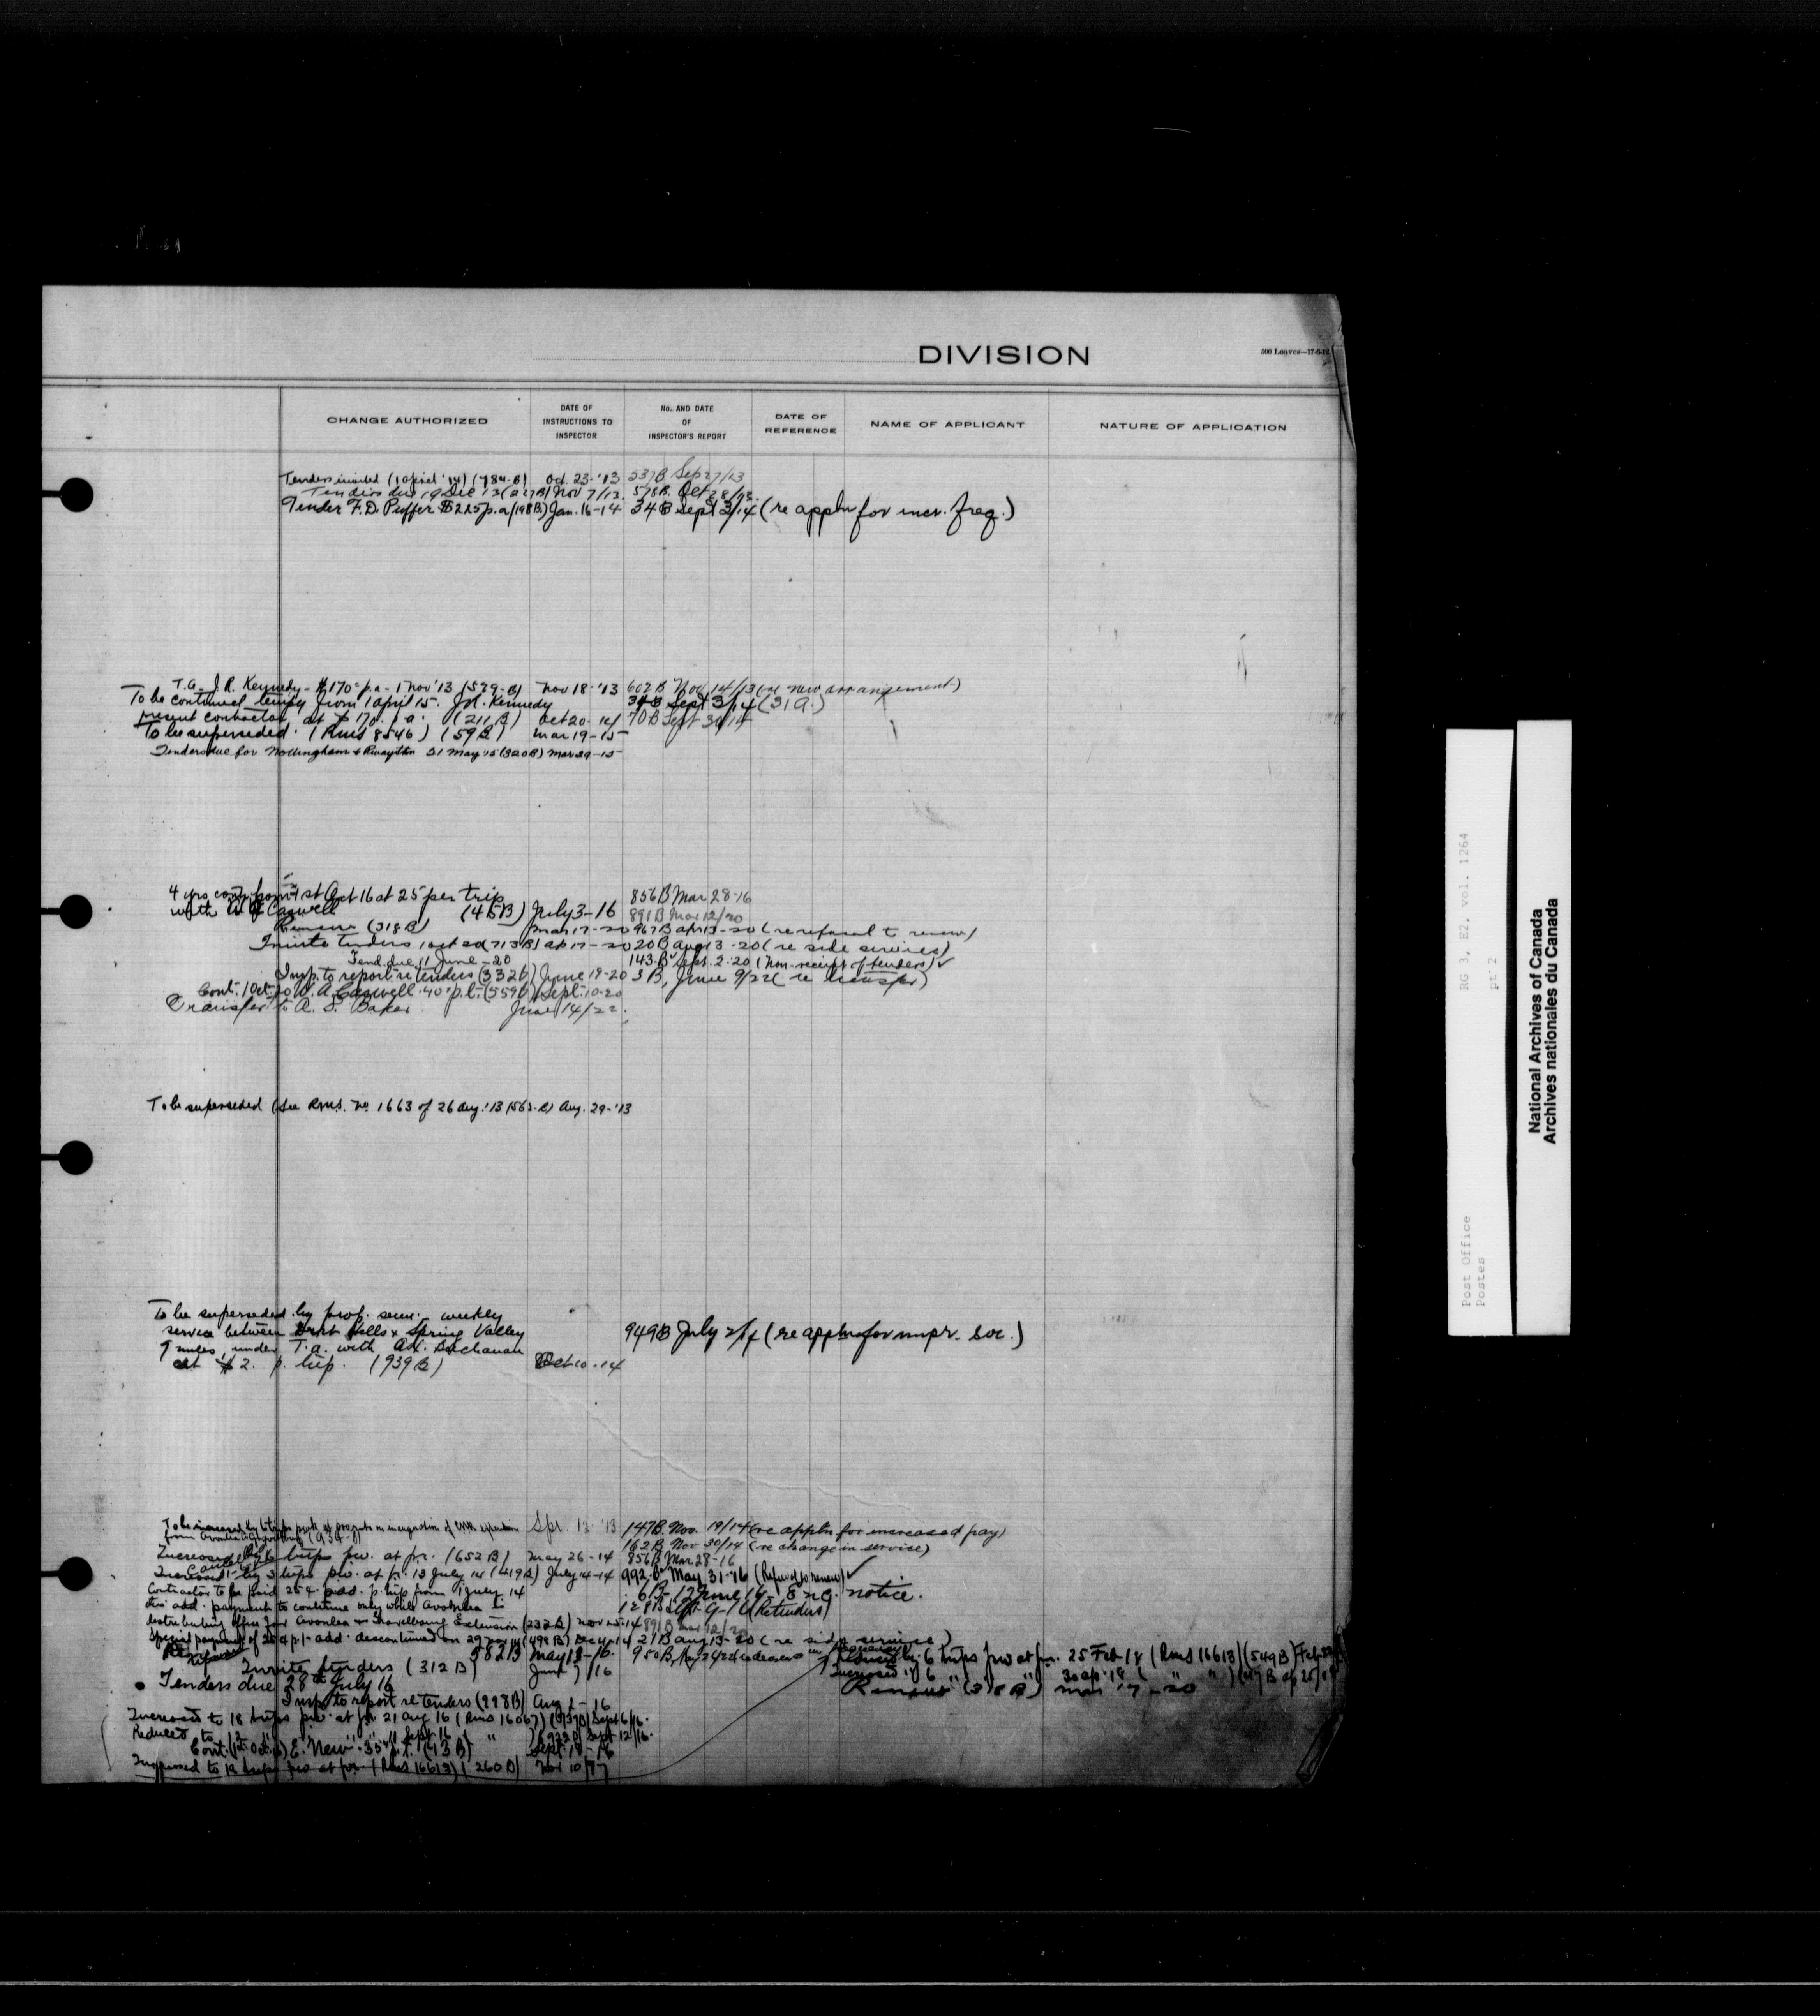 DIVISION
500 Leaves—17-6-12.
CHANGE AUTHORIZED
DATE OF INSTRUCTIONS TO INSPECTOR
No. AND DATE OF INSPECTOR'S REPORT
DATE OF REFERENCE
NAME OF APPLICANT
NATURE OF APPLICATION
Tenders invited (1 April '14) (484-B) Oct. 23-'13 237B Sep 27/13
Tenders due 19 Dec 13 (227B) Nov 7/13. 578B. Oct 28/13.
Tender F.D. Puffer $225 p.a (198B) Jan. 16-14 34B Sept 3/14 (re appln for incr. freq.)
T.a. J.R. Kennedy - $170 p.a - 1 Nov '13 (579-B) Nov 18-'13 602B Nov 14/13 (re new arrangement)
To be continued tempy from 1 April 15. J.R. Kennedy 34B Sept 3/14 (31A.)
present contractor, at $170. p.a. (211B) Oct 20-14 70B Sept 30/14
To be superseded. (Rms 8546) (59B) Mar 19-15
Tenders due for Nottingham & 21 May '15 (320B) Mar 29-15
4 yrs cont. from 1st Oct 16 at 25 per trip 856B Mar 28-16
with Caswell (45B) July 3-16 891B Mar 12/20
Renew (318B) Mar 17-20 967B Apr 13-20 (re refusal to renew)
Invite tenders 1 Oct 20 (713B) Ap 17-20 20B Aug 13-20 (re side services)
Tend. due 11 June-20 143.B Sept. 2-20 (Non-receipt of tenders) ✓
Insp. to report re tenders (332B) June 19-20 3B, June 9/22 (re transfer)
Cont. 1 Oct. 20 A. Caswell 40 p.t. (559B) Sept. 10-20
Transfer to A. S. Baker June 14/22.
To be superseded (See Rms. No 1663 of 26 Aug. '13 (563-B) Aug. 29-'13
To be superseded by prop. semi-weekly
service between Dirt Hills & Spring Valley 949B July 2/14 (re appln for impr. svc.)
9 miles, under T.a. with Buchanan
at $2. p. trip. (939B) Oct 10-14
To be increased by 147B. Nov. 19/14 (re appln for increased pay)
162B Nov 30/14 (re change in service)
Increase by 6 trips pw. at pr. (652B) May 26-14 856B Mar 28-16
Increased by 3 trips p.w. at pr. 13 July 14 (419B) July 14-14 992.B May 31-16 (Refused to renew) ✓
Contractor to be paid 25¢ add. p. trip from 1 July 14 6B-12 June 16- Enc. notice.
this add. payment to continue only while Avonlea is 128B Sept-9-16 (Retenders)
distributing office for Avonlea & Gravelbourg Extension (232B) Nov 14 891B Mar 12/20
Special payment of 25¢ p.t. add. discontinued on 29 Nov 14 (498B) Dec 4-14 21B Aug 13-20 (re side service)
582B May 18-16.
Invite tenders (312B) June 7/16
Reduced by 6 trips pw at pr. 25 Feb 18 (Rms 16613) (549B)
Increased " 6 " " " 30 Ap. 18 ( " " ) (47B Ap 26/18
Renew (318B) Mar 17-20
Tenders due 28th July 16
Insp. to report re tenders (298B) Aug 2-16
Increased to 18 trips pw. at pr 21 Aug 16 (Rms 16067) Sept 6/16.
Reduced to 12 " " " 11 Sept 16 " Sept 12/16.
Cont. E. New. 35 p.t. (13B) Sept. 18-16
Increased to 18 trips pw at pr. (Rms 16613) (260B) Nov 10/17
RG 3, E2, vol. 1264
pt 2
Post Office
Postes
National Archives of Canada
Archives nationales du Canada